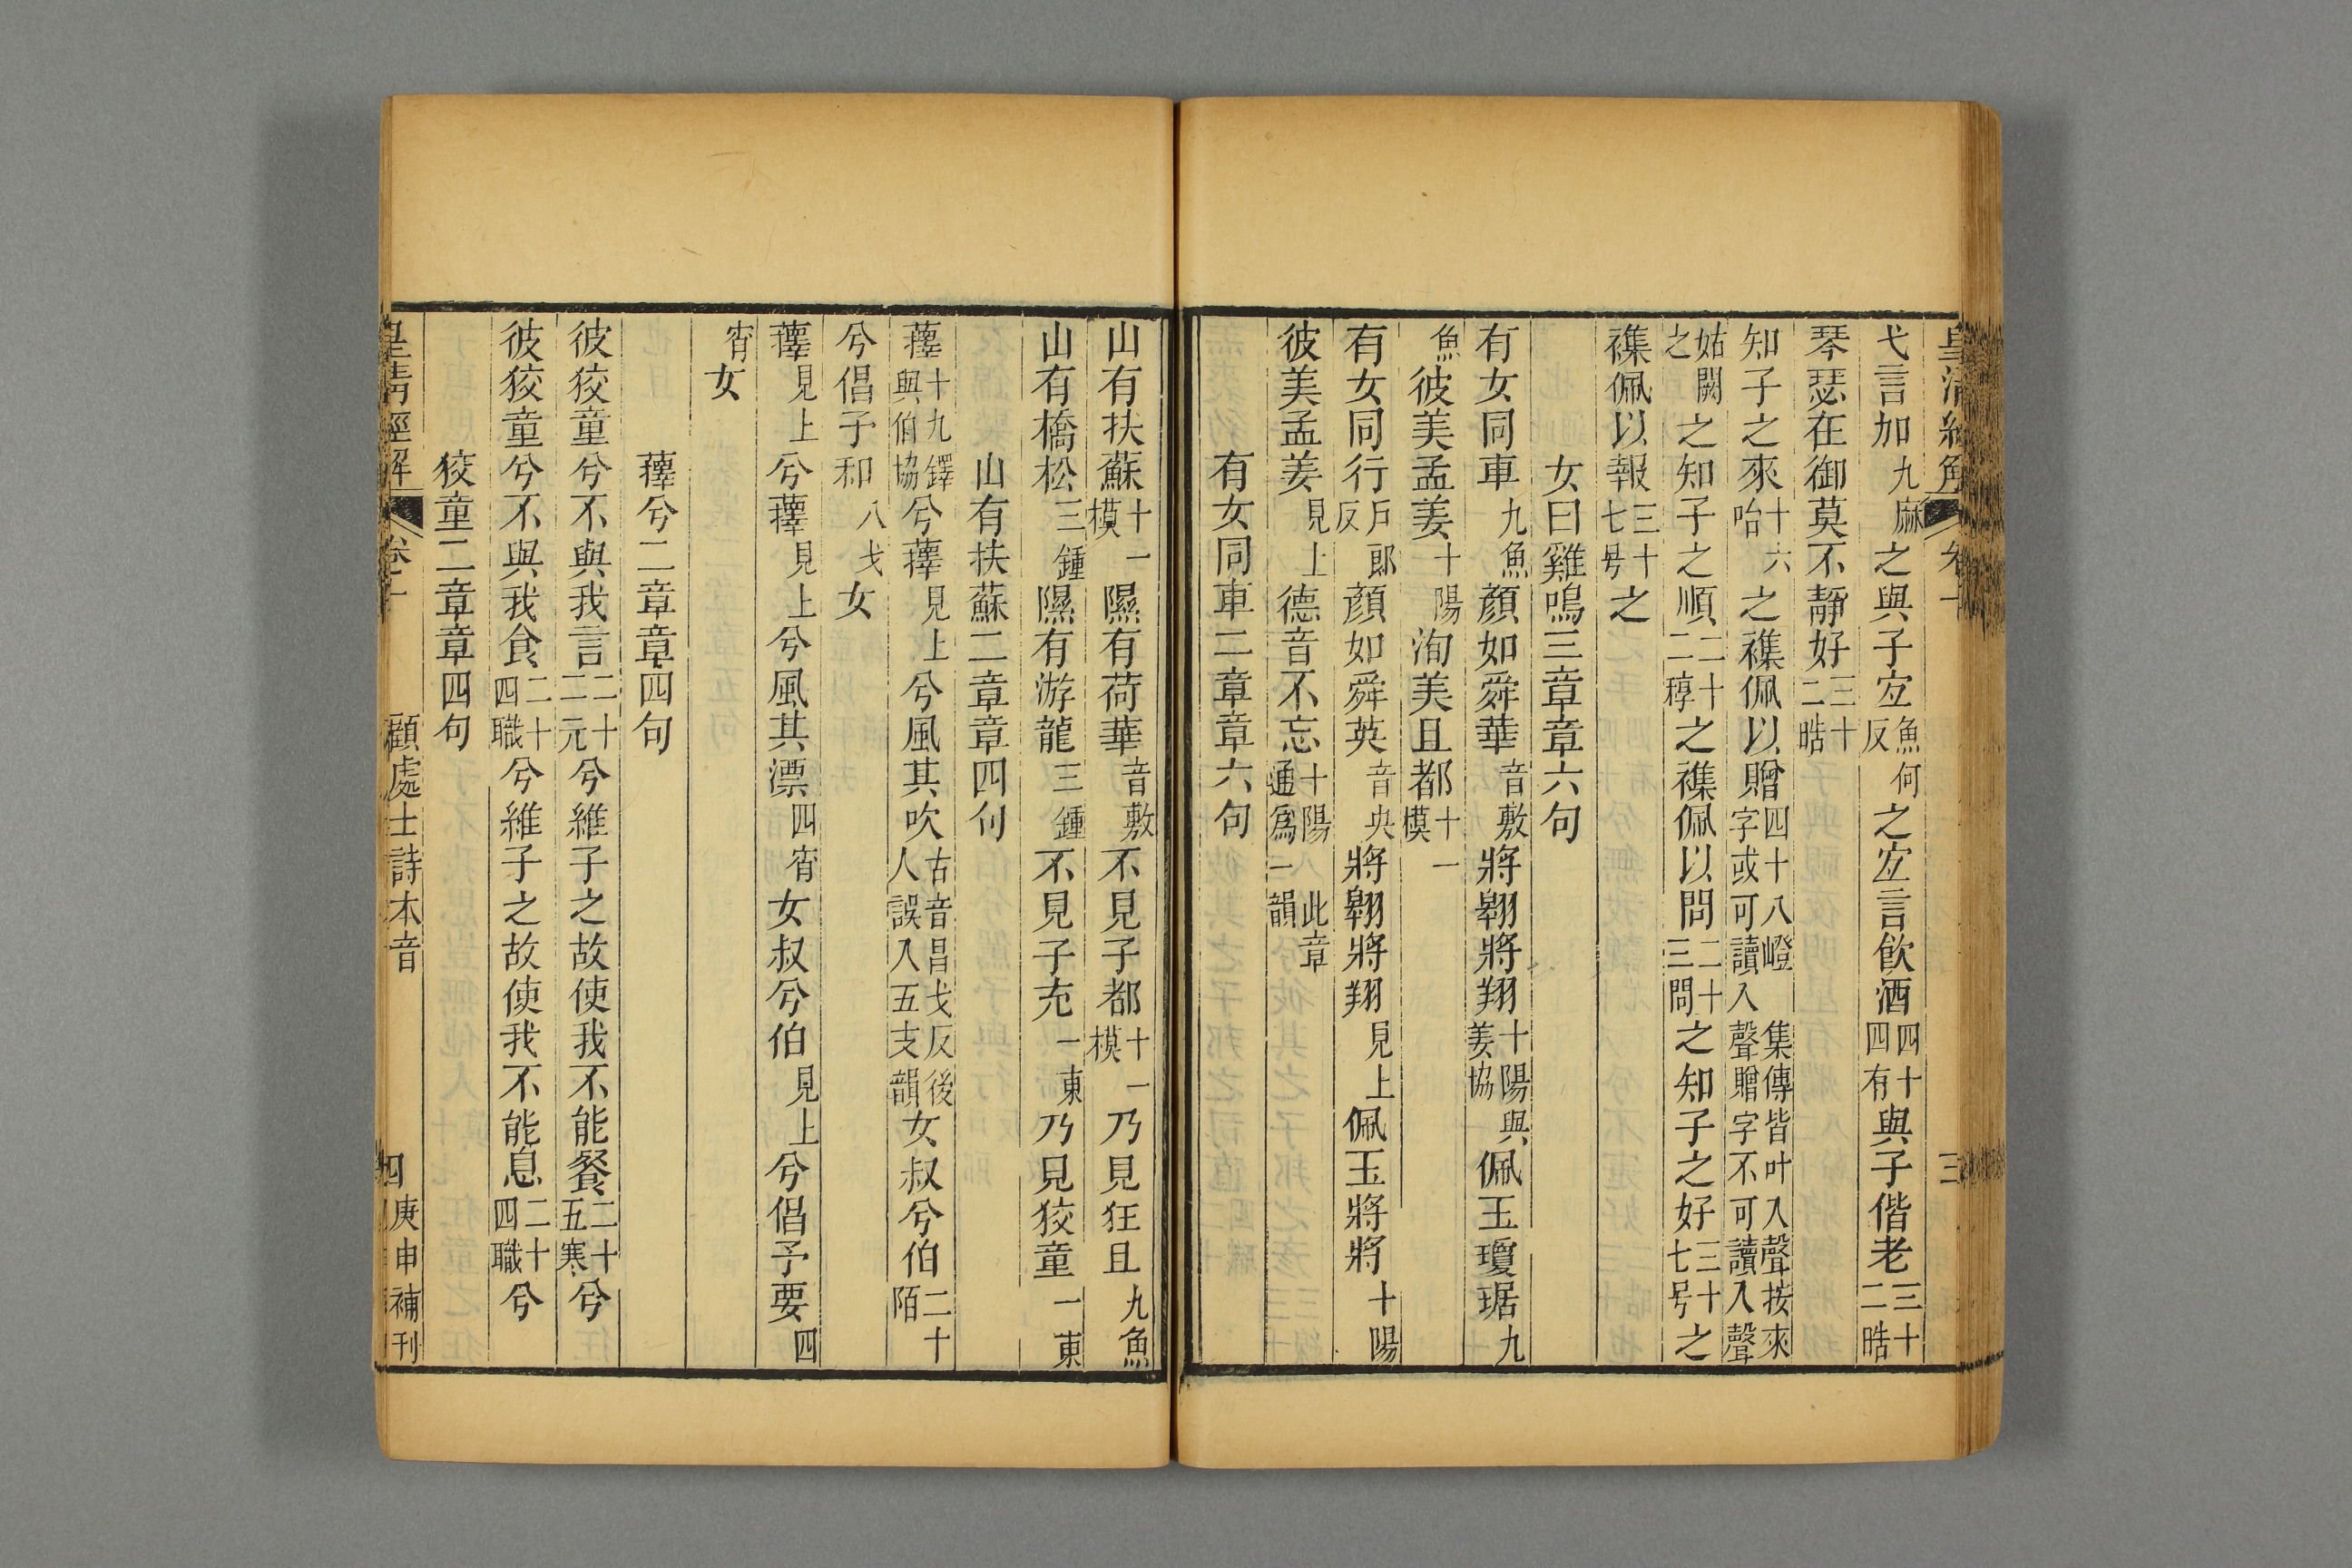 皇清經解 卷十 三
弋言加九麻之與子宐魚何反之宐言飲酒四十四有與子偕老三十二晧
琴瑟在御莫不靜好三十二晧
知子之來十六咍之襍佩以贈四十八嶝集傳皆叶入聲按來字或可讀入聲贈字不可讀入聲
姑闕之之知子之順二十二稕之襍佩以問二十三問之知子之好三十七号之
襍佩以報三十七号之
女曰雞鳴三章章六句
有女同車九魚顏如舜華音敷將翱將翔十陽與姜協佩玉瓊琚九
魚彼美孟姜十陽洵美且都十一模
有女同行戶郎反顏如舜英音央將翱將翔見上佩玉將將十陽
彼美孟姜見上德音不忘十陽此章通爲一韻
有女同車二章章六句
山有扶蘇十一模隰有荷華音敷不見子都十一模乃見狂且九魚
山有橋松三鍾隰有游龍三鍾不見子充一東乃見狡童一東
山有扶蘇二章章四句
蘀十九鐸與伯協兮蘀見上兮風其吹古音昌戈反後人誤入五支韻女叔兮伯二十陌
兮倡予和八戈女
蘀見上兮蘀見上兮風其漂四宵女叔兮伯見上兮倡予要四
宵女
蘀兮二章章四句
彼狡童兮不與我言二十二元兮維子之故使我不能餐二十五寒兮
彼狡童兮不與我食二十四職兮維子之故使我不能息二十四職兮
狡童二章章四句
皇清經解 卷十 顧處士詩本音 四 庚申補刊